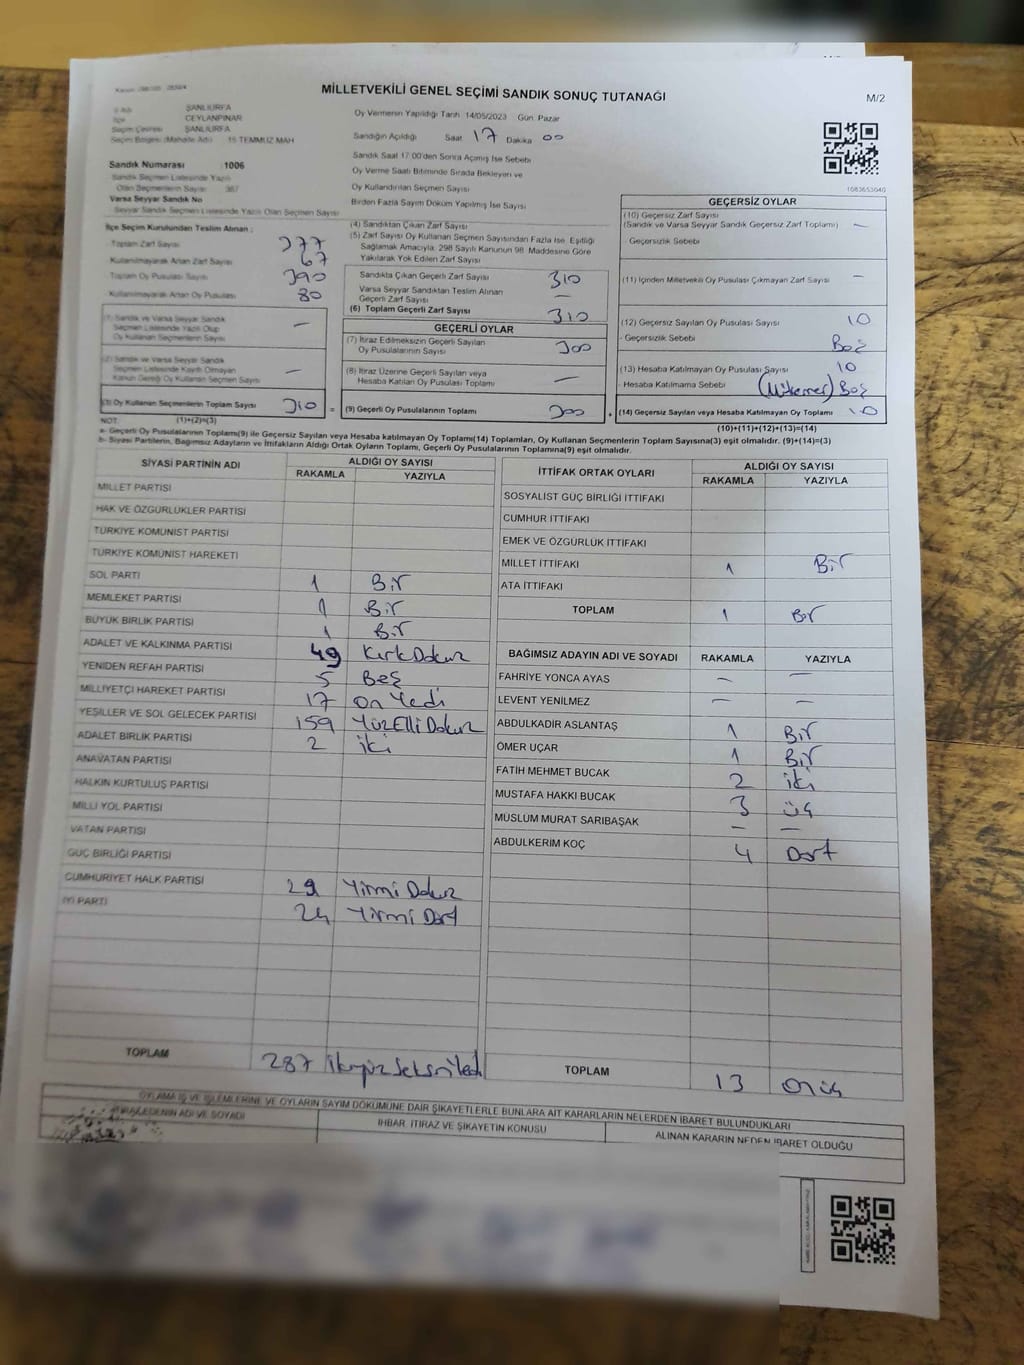 MİLLETVEKİLİ GENEL SEÇİMİ SANDIK SONUÇ TUTANAĞI
M/2
İl Adı ŞANLIURFA
İlçe CEYLANPINAR
Seçim Çevresi ŞANLIURFA
Seçim Bölgesi (Mahalle Adı) 15 TEMMUZ MAH
Sandık Numarası : 1006
Sandık Seçmen Listesinde Yazılı
Olan Seçmenlerin Sayısı 367
Varsa Seyyar Sandık No
Seyyar Sandık Seçmen Listesinde Yazılı Olan Seçmen Sayısı
Oy Vermenin Yapıldığı Tarih 14/05/2023 Gün: Pazar
Sandığın Açıldığı Saat 17 Dakika 00
Sandık Saat 17:00'den Sonra Açılmış İse Sebebi
Oy Verme Saati Bitiminde Sırada Bekleyen ve
Oy Kullandırılan Seçmen Sayısı
Birden Fazla Sayım Döküm Yapılmış İse Sayısı
1083653040
İlçe Seçim Kurulundan Teslim Alınan :
Toplam Zarf Sayısı 377
Kullanılmayarak Artan Zarf Sayısı 67
Toplam Oy Pusulası Sayısı 390
Kullanılmayarak Artan Oy Pusulası 80
(1) Sandık ve Varsa Seyyar Sandık
Seçmen Listesinde Yazılı Olup
Oy Kullanan Seçmenlerin Sayısı —
(2) Sandık ve Varsa Seyyar Sandık
Seçmen Listesinde Kayıtlı Olmayan
Kanun Gereği Oy Kullanan Seçmen Sayısı —
(3) Oy Kullanan Seçmenlerin Toplam Sayısı 310 =
(1)+(2)=(3)
(4) Sandıktan Çıkan Zarf Sayısı
(5) Zarf Sayısı Oy Kullanan Seçmen Sayısından Fazla İse, Eşitliği
Sağlamak Amacıyla, 298 Sayılı Kanunun 98. Maddesine Göre
Yakılarak Yok Edilen Zarf Sayısı
Sandıkta Çıkan Geçerli Zarf Sayısı 310
Varsa Seyyar Sandıktan Teslim Alınan
Geçerli Zarf Sayısı —
(6) Toplam Geçerli Zarf Sayısı 310
GEÇERLİ OYLAR
(7) İtiraz Edilmeksizin Geçerli Sayılan
Oy Pusulalarının Sayısı 300
(8) İtiraz Üzerine Geçerli Sayılan veya
Hesaba Katılan Oy Pusulası Toplamı —
(9) Geçerli Oy Pusulalarının Toplamı 300 +
GEÇERSİZ OYLAR
(10) Geçersiz Zarf Sayısı
(Sandık ve Varsa Seyyar Sandık Geçersiz Zarf Toplamı) —
- Geçersizlik Sebebi
(11) İçinden Milletvekili Oy Pusulası Çıkmayan Zarf Sayısı —
(12) Geçersiz Sayılan Oy Pusulası Sayısı 10
- Geçersizlik Sebebi Boş
(13) Hesaba Katılmayan Oy Pusulası Sayısı 10
- Hesaba Katılmama Sebebi Boş
(14) Geçersiz Sayılan veya Hesaba Katılmayan Oy Toplamı 10
(10)+(11)+(12)+(13)=(14)
NOT:
a- Geçerli Oy Pusulalarının Toplamı(9) ile Geçersiz Sayılan veya Hesaba katılmayan Oy Toplamı(14) Toplamları, Oy Kullanan Seçmenlerin Toplam Sayısına(3) eşit olmalıdır. (9)+(14)=(3)
b- Siyasi Partilerin, Bağımsız Adayların ve İttifakların Aldığı Oyların Toplamı, Geçerli Oy Pusulalarının Toplamına(9) eşit olmalıdır.
SİYASİ PARTİNİN ADI ALDIĞI OY SAYISI
RAKAMLA YAZIYLA
MİLLET PARTİSİ
HAK VE ÖZGÜRLÜKLER PARTİSİ
TÜRKİYE KOMÜNİST PARTİSİ
TÜRKİYE KOMÜNİST HAREKETİ
SOL PARTİ 1 Bir
MEMLEKET PARTİSİ 1 Bir
BÜYÜK BİRLİK PARTİSİ 1 Bir
ADALET VE KALKINMA PARTİSİ 49 Kırk Dokuz
YENİDEN REFAH PARTİSİ 5 Beş
MİLLİYETÇİ HAREKET PARTİSİ 17 On Yedi
YEŞİLLER VE SOL GELECEK PARTİSİ 159 Yüz Elli Dokuz
ADALET BİRLİK PARTİSİ 2 iki
ANAVATAN PARTİSİ
HALKIN KURTULUŞ PARTİSİ
MİLLİ YOL PARTİSİ
VATAN PARTİSİ
GÜÇ BİRLİĞİ PARTİSİ
CUMHURİYET HALK PARTİSİ 29 Yirmi Dokuz
İYİ PARTİ 24 Yirmi Dört
TOPLAM 287 ikiyüz Seksen Yedi
İTTİFAK ORTAK OYLARI ALDIĞI OY SAYISI
RAKAMLA YAZIYLA
SOSYALİST GÜÇ BİRLİĞİ İTTİFAKI
CUMHUR İTTİFAKI
EMEK VE ÖZGÜRLÜK İTTİFAKI
MİLLET İTTİFAKI 1 Bir
ATA İTTİFAKI
TOPLAM 1 Bir
BAĞIMSIZ ADAYIN ADI VE SOYADI RAKAMLA YAZIYLA
FAHRİYE YONCA AYAS — —
LEVENT YENİLMEZ — —
ABDULKADIR ASLANTAŞ 1 Bir
ÖMER UÇAR 1 Bir
FATİH MEHMET BUCAK 2 iki
MUSTAFA HAKKI BUCAK 3 üç
MÜSLÜM MURAT SARIBAŞAK — —
ABDULKERİM KOÇ 4 Dört
TOPLAM 13 On üç
OYLAMA İŞ VE İŞLEMLERİNE VE OYLARIN SAYIM DÖKÜMÜNE DAİR ŞİKAYETLERLE BUNLARA AİT KARARLARIN NELERDEN İBARET BULUNDUKLARI
ADI VE SOYADI
İHBAR, İTİRAZ VE ŞİKAYETİN KONUSU
ALINAN KARARIN NEDEN İBARET OLDUĞU